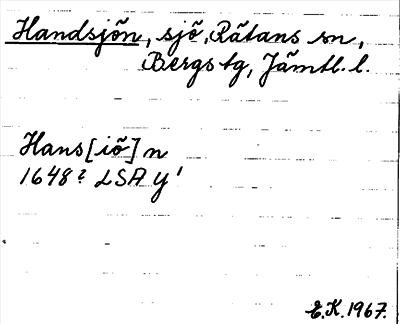 Handsjön, sjö, Rätans sn,
Bergs tg, Jämtl. l.
Hans[iö]n
1648? LSA Y'
E.K. 1967.